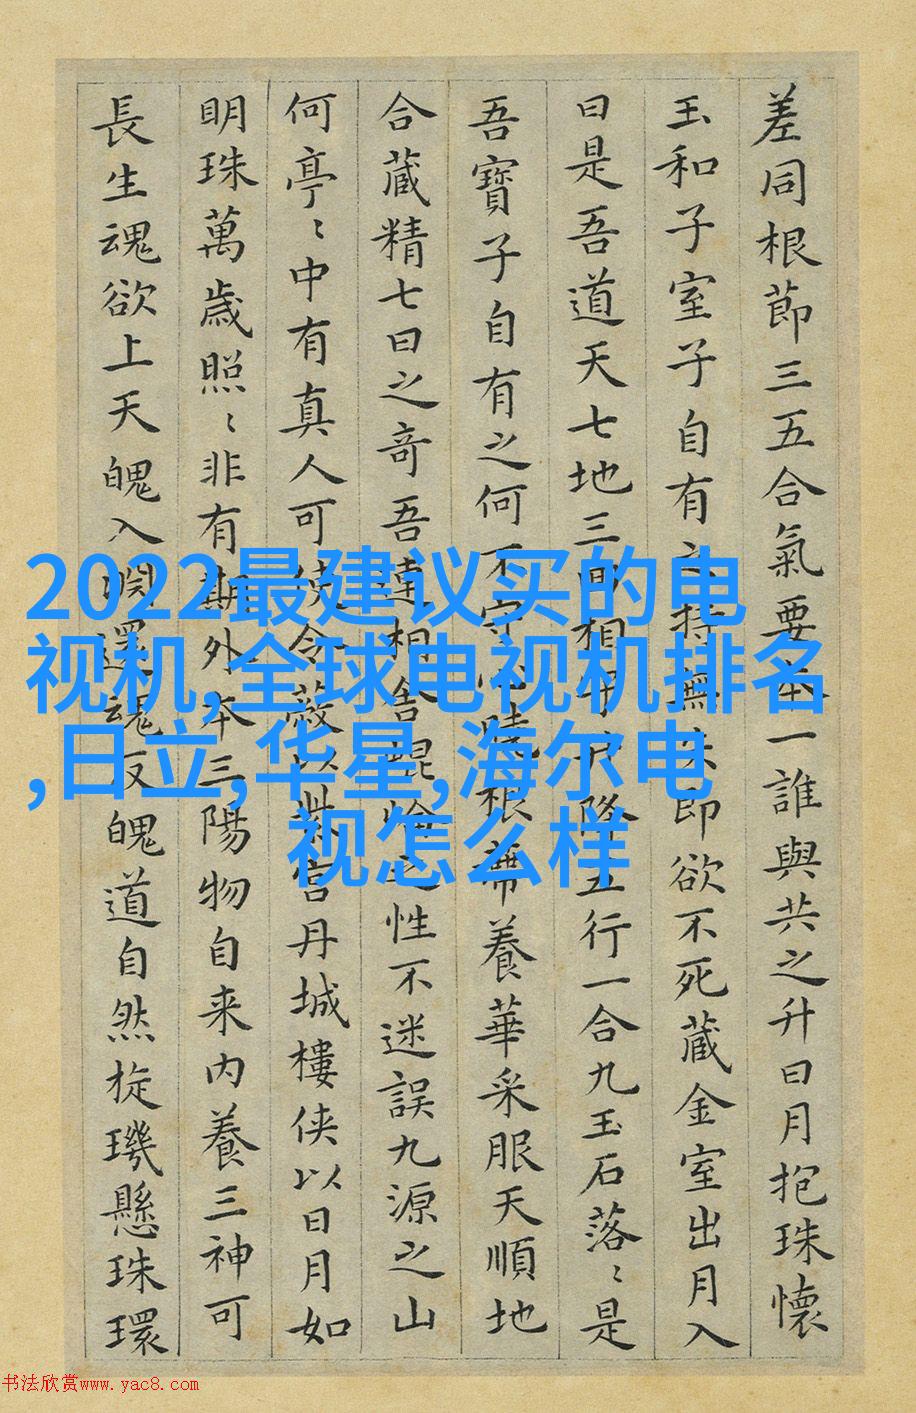 差同根節三五合氣要本一誰與共之升日月抱珠懷
玉和子室子自有之持無失即欲不死藏金室出月入
日是吾道天七地三回相守升降五行一合九玉石落〻是
吾寶子自有之何不守心曉根蒂養華采服天順地
合藏精七日之奇吾連相舍崑崙之性不迷誤九源之山
何亭〻中有真人可使令蔽以紫宮丹城樓侠以日月如
明珠萬歲照〻非有期外本三陽物自来内養三神可
長生魂欲上天魄入淵還魂反魄道自然旋璣懸珠環
2022最建议买的电
视机,全球电视机排名
,日立,华星,海尔电
视怎么样
书法欣赏www.yac8.com